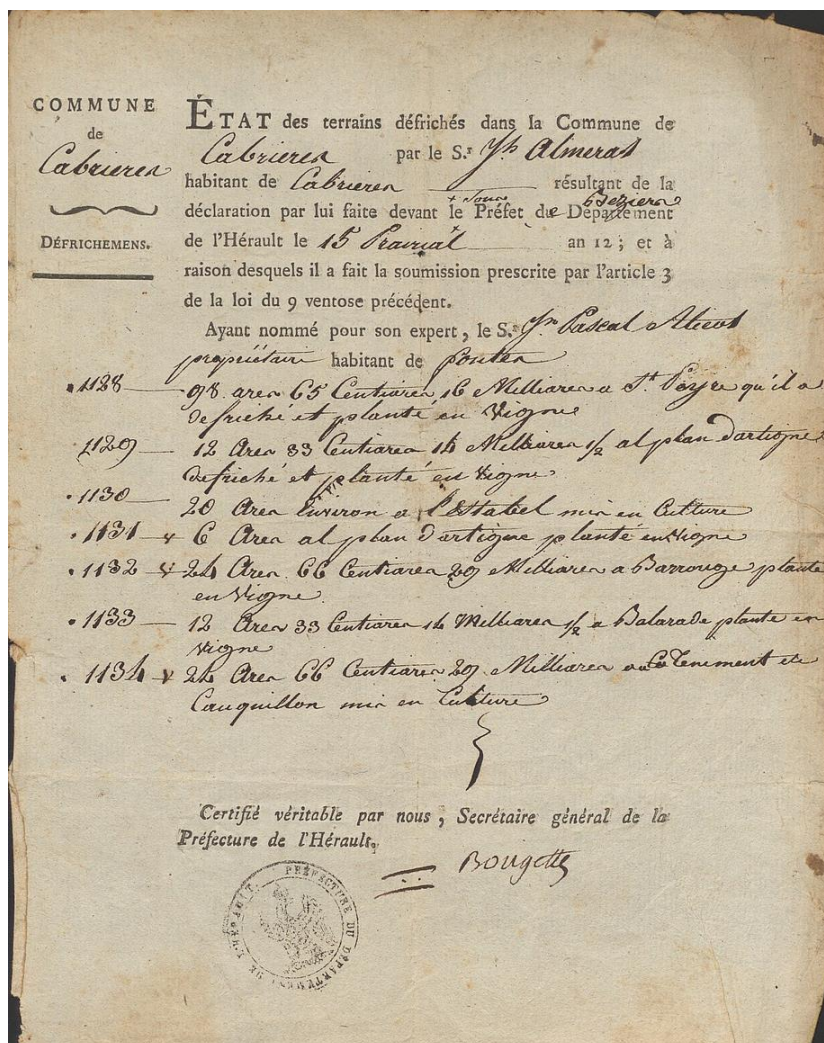 COMMUNE
de
Cabrieres
DÉFRICHEMENS.
ÉTAT des terrains défrichés dans la Commune de
Cabrieres par le S.r Jh Almeras
habitant de Cabrieres résultant de la
+ Sous Beziers
déclaration par lui faite devant le Préfet de Département
de l'Hérault le 15 Prairial + an 12 ; et à
raison desquels il a fait la soumission prescrite par l'article 3
de la loi du 9 ventose précédent.
Ayant nommé pour son expert, le S.r Jn Pascal
propriétaire habitant de fontes
1128 98 ares 65 Centiares 16 Milliares a St Peyre qu'il a
defriché et planté en Vigne
1129 12 Ares 33 Centiares 14 Milliares 1/2 al plan d'artigne
defriché et planté en Vigne
1130 20 Ares Environ a l'Estabel mis en Culture
1131 v 6 Ares al plan d'artigne planté en Vigne
1132 v 24 Ares 66 Centiares 29 Milliares a Barrouge planté
en Vigne
1133 12 Ares 33 Centiares 14 Milliares 1/2 a Balarade planté en
Vigne
1134 v 24 Ares 66 Centiares 29 Milliares au Tenement de
Cauquillon mis en Culture
Certifié véritable par nous, Secrétaire général de la
Préfecture de l'Hérault.
Bougette
PRÉFECTURE DU DÉPARTEMENT DE L'HÉRAULT